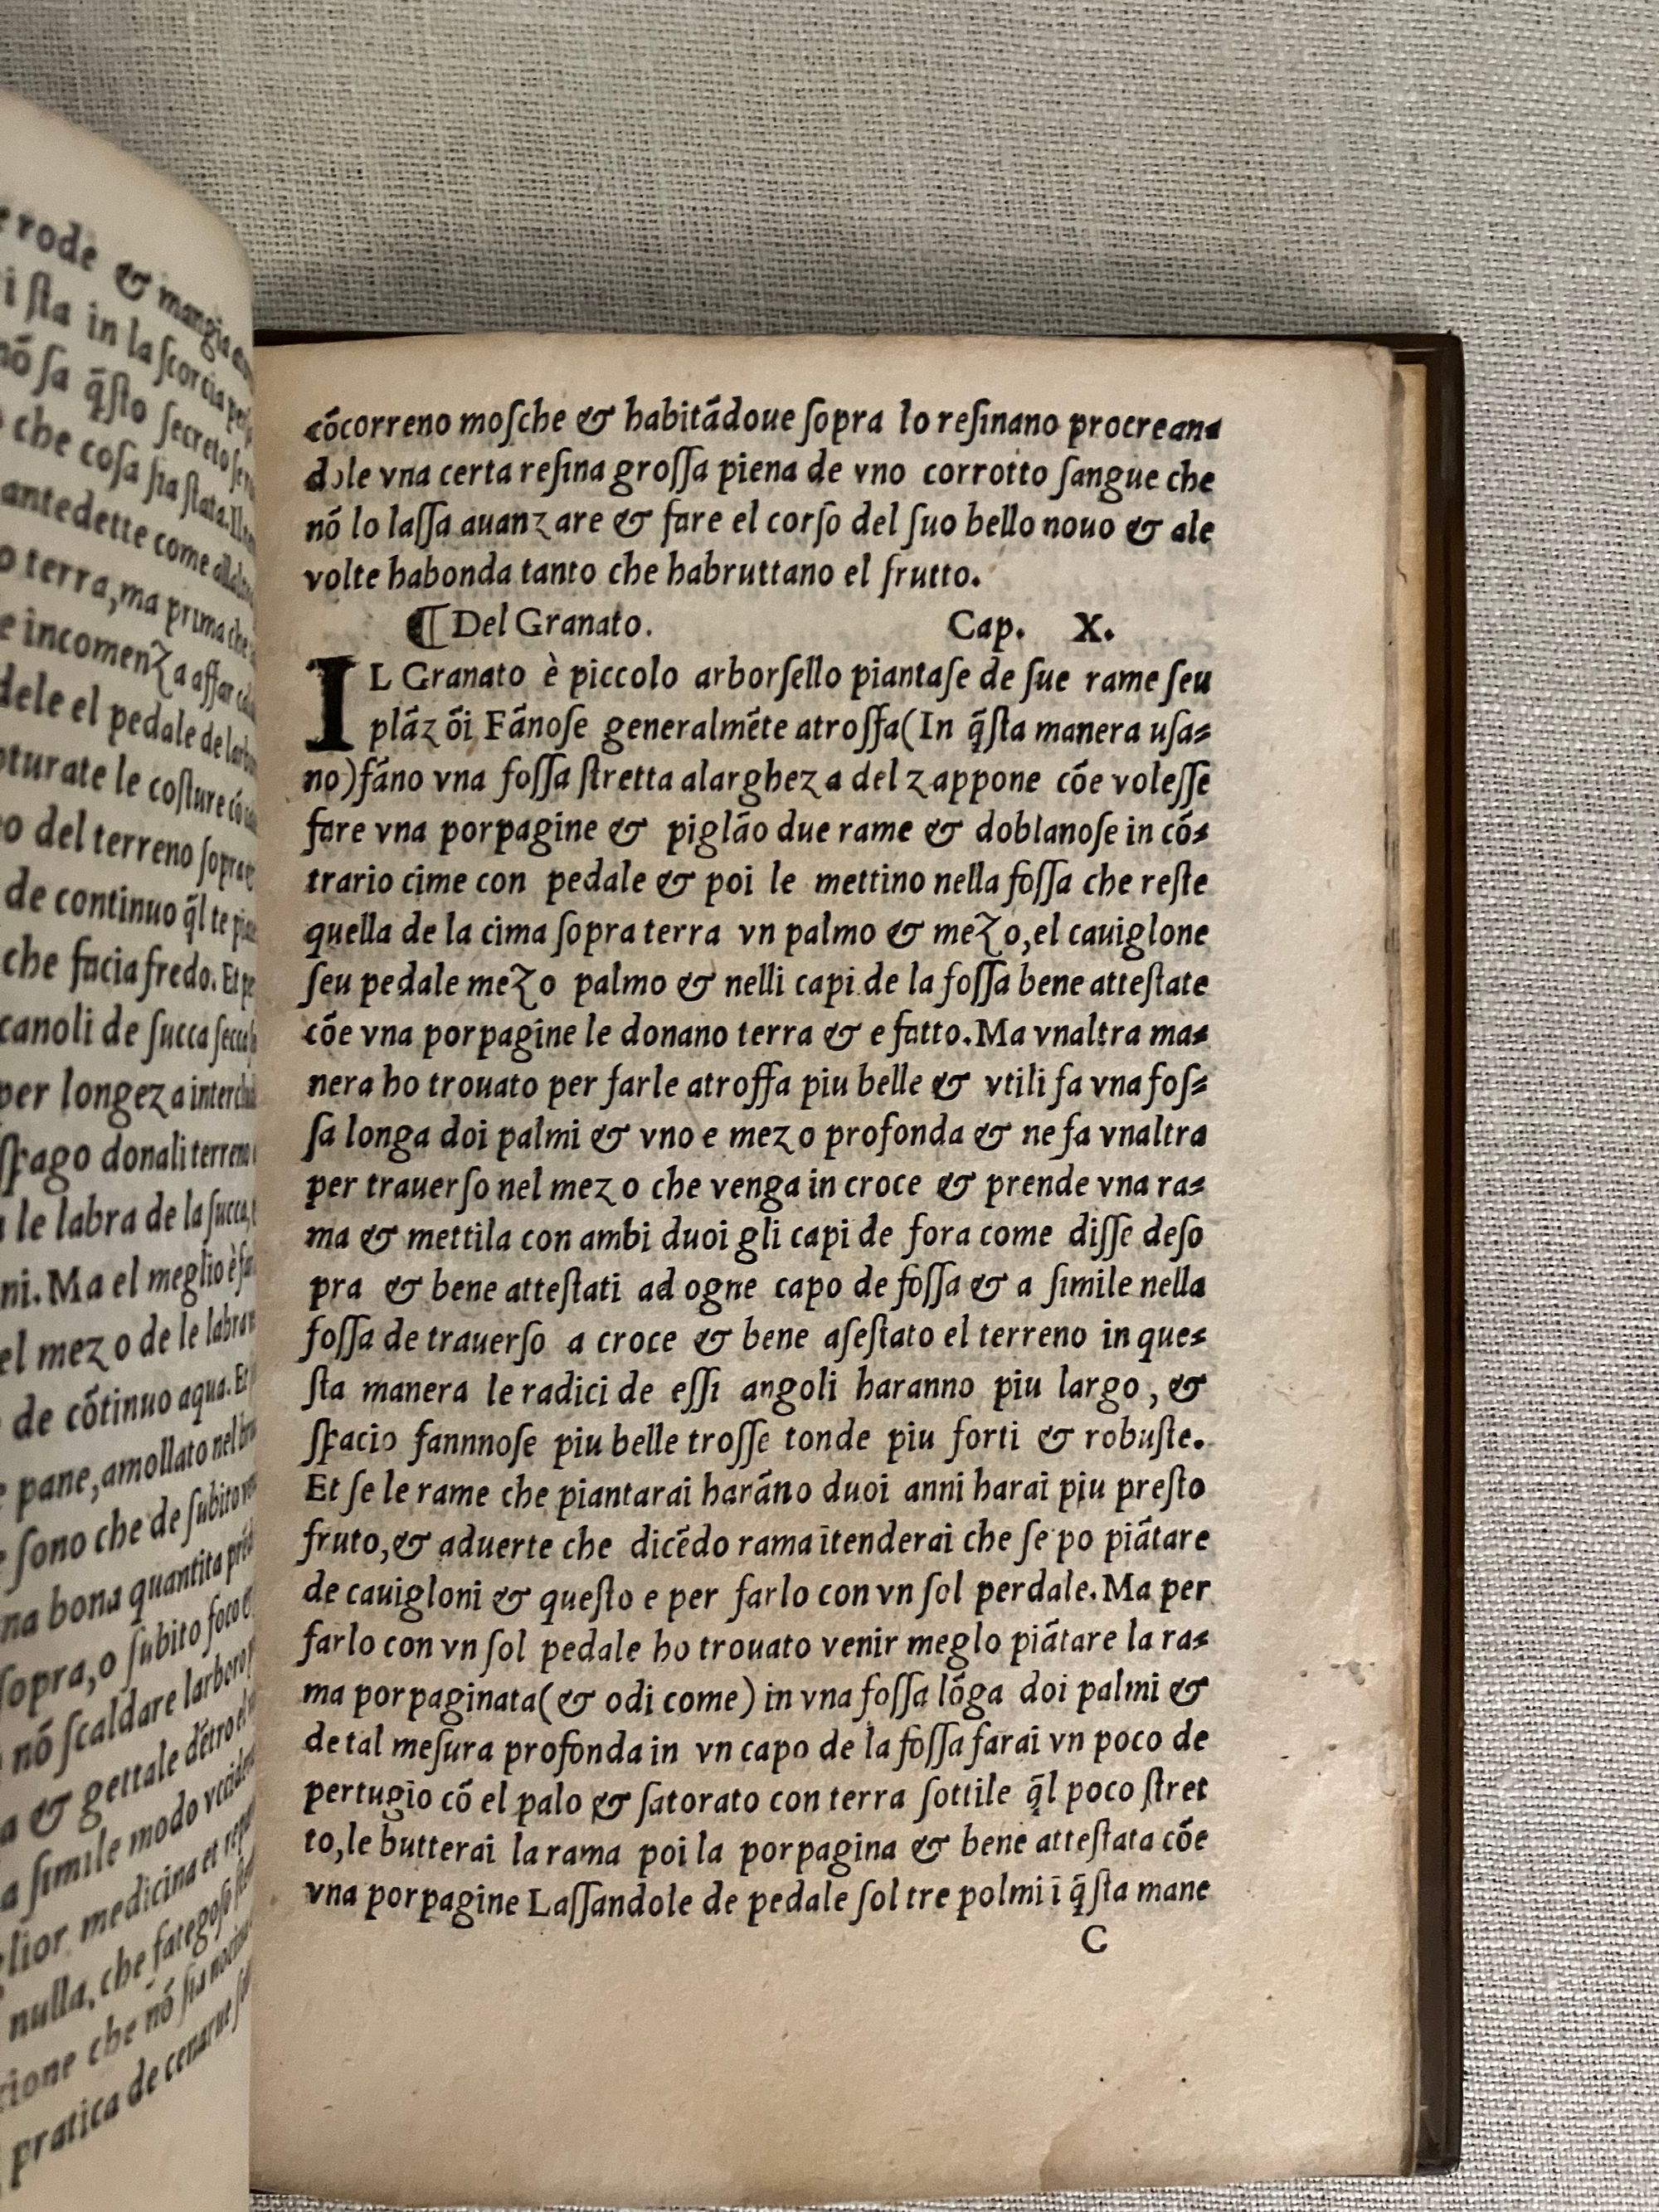 r rode & mangia
i ſta in la ſcorcia
nó ſa q̃ſto ſecreto
che coſa ſia ſtata. Il
antedette come
o terra, ma prima che
e incomenza affar
dele el pedale de
pturate le coſture có
o del terreno ſopra
de continuo q̃l te
che facia fredo. Et
canoli de ſucca ſecca
per longeza
ſpago donali terreno
le labra de la ſucca,
ni. Ma el meglio è
el mezo de le
de cótinuo aqua. Et
pane, amollato nel
ſono che de ſubito
na bona quantita
ſopra, o ſubito foco
nó ſcaldare larbero
a & gettale détro
a ſimile modo
medicina et
nulla, che
zione che nó ſia
pratica de
cócorreno moſche & habitádoue ſopra lo reſinano procrean⸗
dole vna certa reſina groſſa piena de vno corrotto ſangue che
nó lo laſſa auanzare & fare el corſo del ſuo bello nouo & ale
volte habonda tanto che habruttano el frutto.
¶ Del Granato. Cap. X.
IL Granato è piccolo arborſello piantaſe de ſue rame ſeu
plázói Fánoſe generalméte atroſſa (In q̃ſta manera uſa⸗
no) fáno vna foſſa ſtretta alargheza del zappone cóe voleſſe
fare vna porpagine & piglāo due rame & doblanoſe in có⸗
trario cime con pedale & poi le mettino nella foſſa che reſte
quella de la cima ſopra terra vn palmo & mezo, el cauiglone
ſeu pedale mezo palmo & nelli capi de la foſſa bene atteſtate
cóe vna porpagine le donano terra & e fatto. Ma vnaltra ma⸗
nera ho trouato per farle atroffa piu belle & vtili fa vna foſ⸗
ſa longa doi palmi & vno e mezo profonda & ne fa vnaltra
per trauerſo nel mezo che venga in croce & prende vna ra⸗
ma & mettila con ambi duoi gli capi de fora come diſſe deſo
pra & bene atteſtati ad ogne capo de foſſa & a ſimile nella
foſſa de trauerſo a croce & bene aſeſtato el terreno in que⸗
ſta manera le radici de eſſi angoli haranno piu largo, &
ſpacio fannnoſe piu belle troſſe tonde piu forti & robuſte.
Et ſe le rame che piantarai haráno duoi anni harai piu preſto
fruto, & aduerte che dicédo rama ītenderai che ſe po piátare
de cauigloni & queſto e per farlo con vn ſol perdale. Ma per
farlo con vn ſol pedale ho trouato venir meglo piátare la ra⸗
ma porpaginata (& odi come) in vna foſſa lóga doi palmi &
de tal meſura profonda in vn capo de la foſſa farai vn poco de
pertugio có el palo & ſatorato con terra ſottile q̃l poco ſtret
to, le butterai la rama poi la porpagina & bene atteſtata cóe
vna porpagine Laſſandole de pedale ſol tre polmi ī q̃ſta mane
C